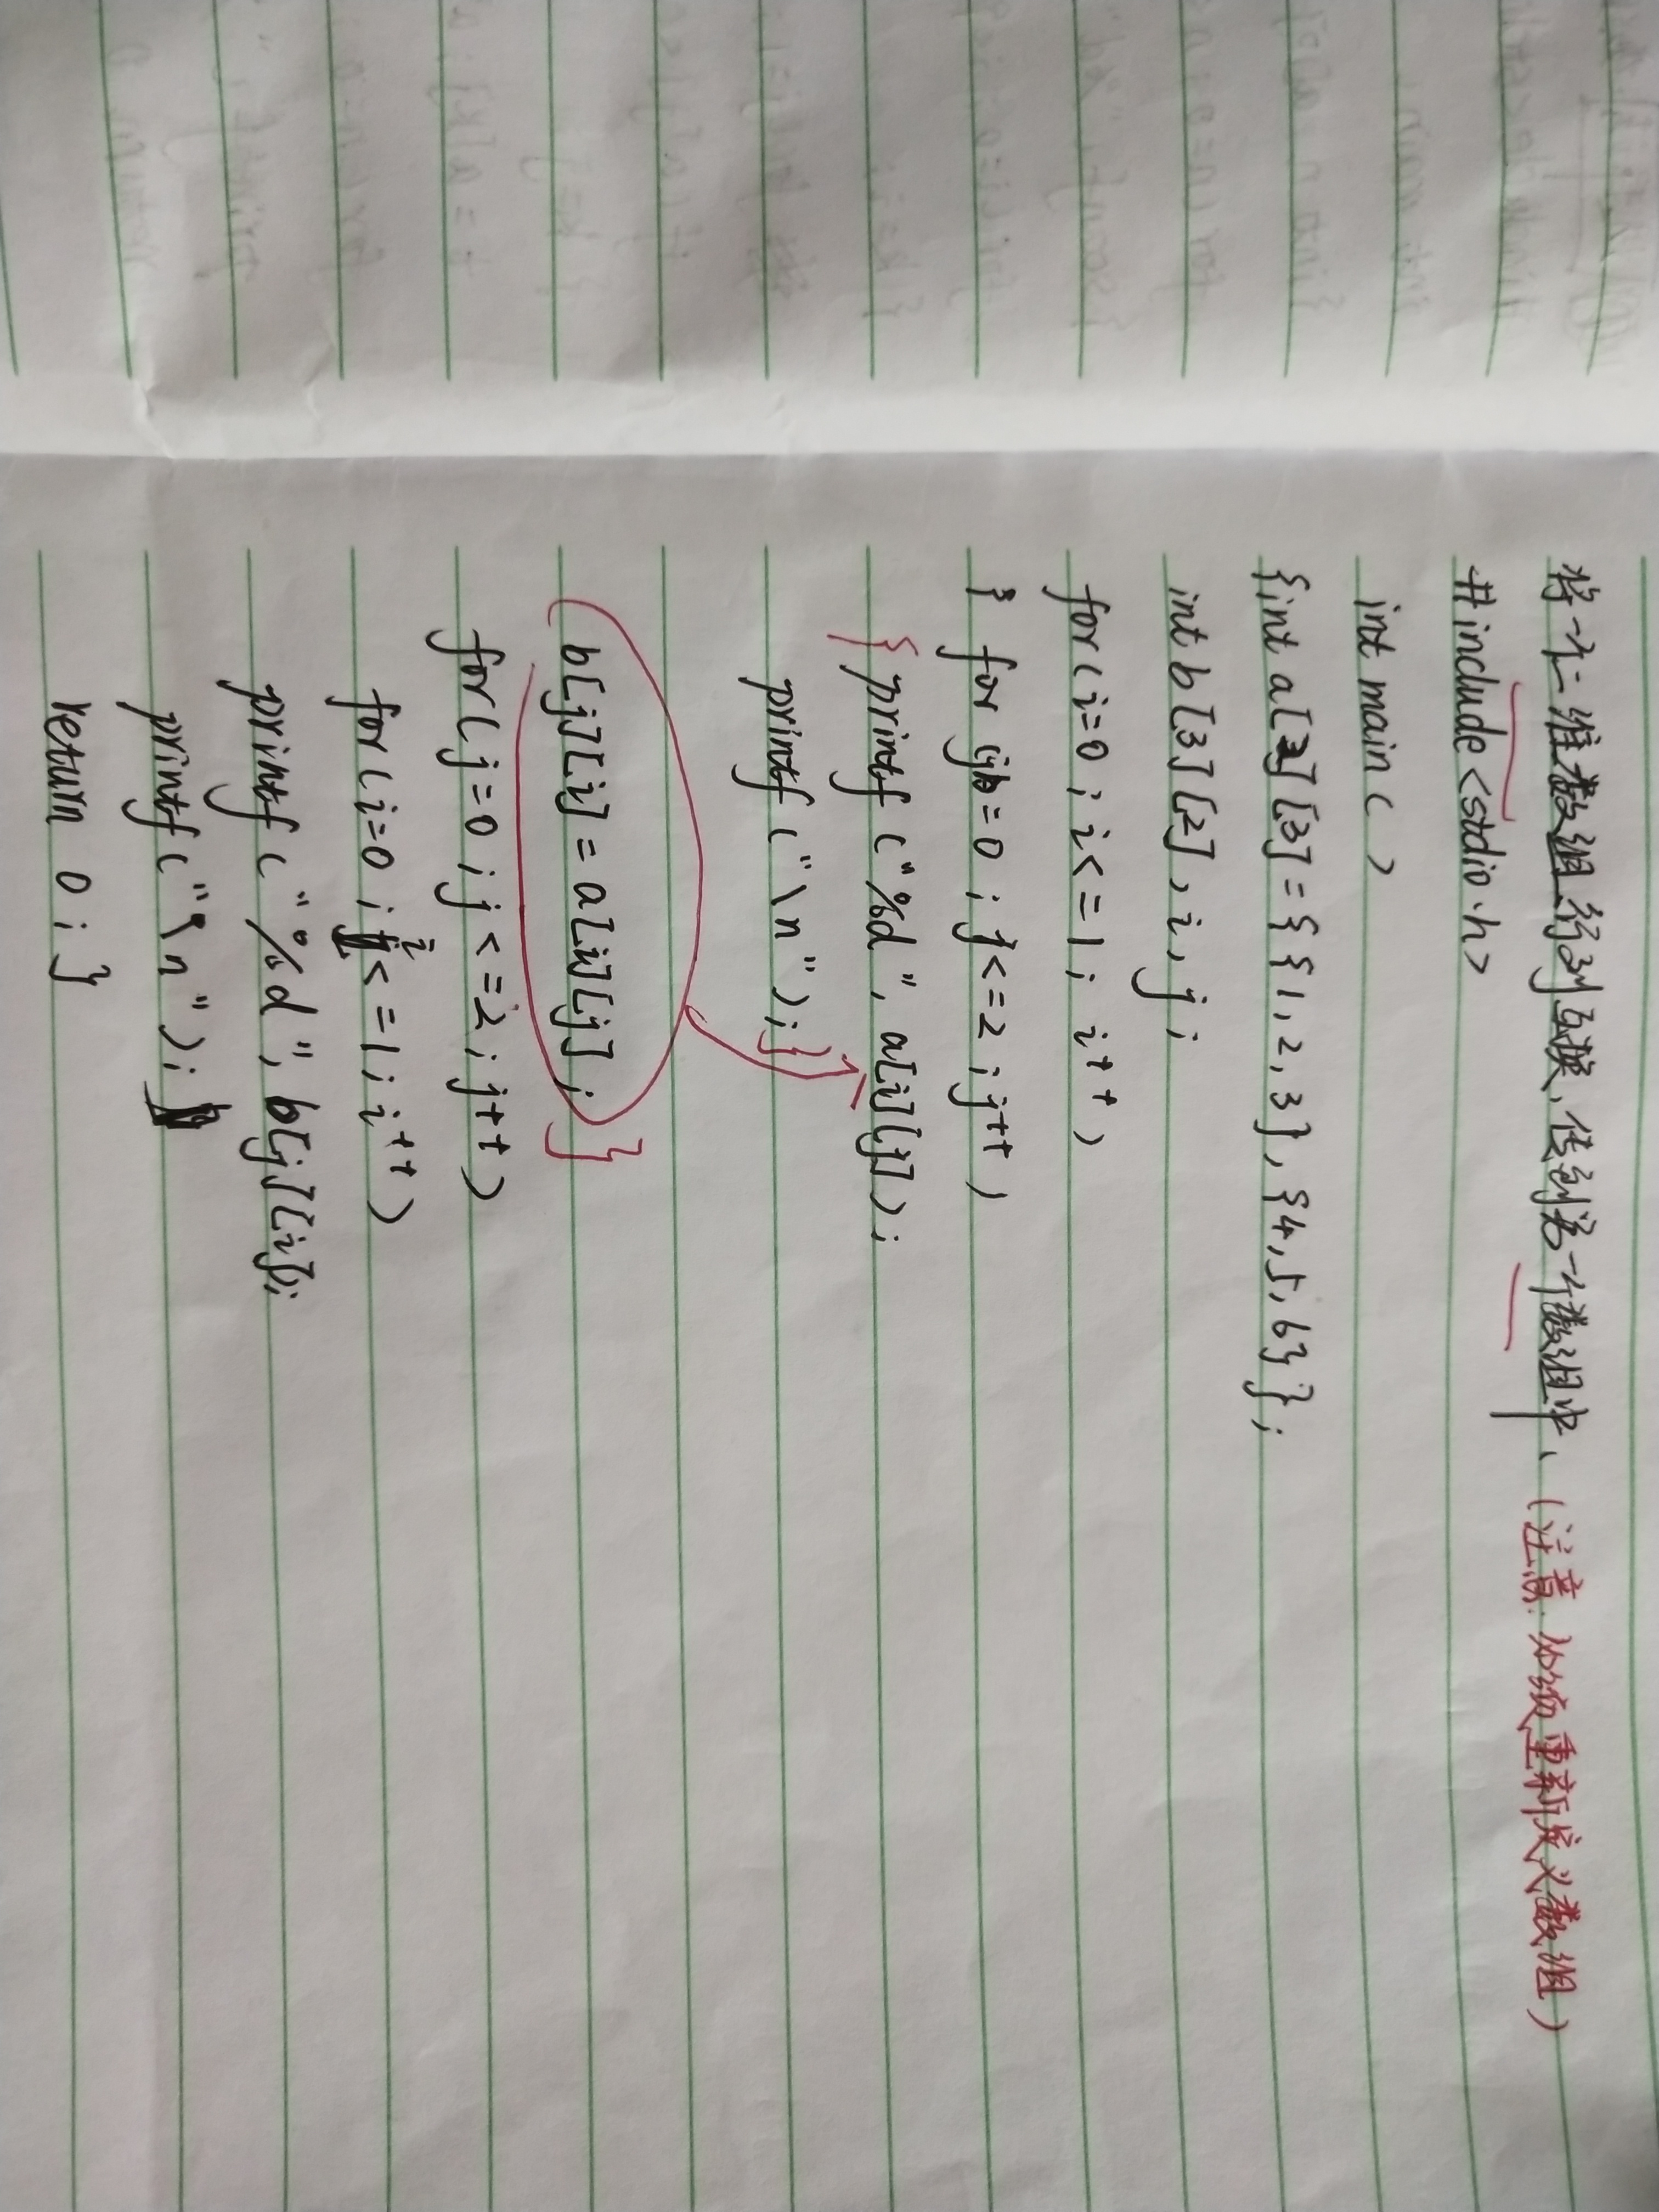 将一个二维数组行列互换,传到另一个数组中、(注意:必须重新定义数组)
#include<stdio.h>
int main()
{int a[2][3]={{1,2,3},{4,5,6}};
int b[3][2],i,j;
for(i=0;i<=1;i++)
{ for(j=0;j<=2;j++)
{printf("%d",a[i][j]);
printf("\n");}
b[j][i]=a[i][j];}
for(j=0;j<=2;j++)
for(i=0;i<=1;i++)
printf("%d",b[j][i];
printf("\n");
return 0;}